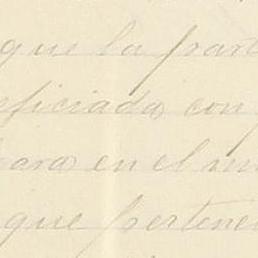 que la part
eficiada con
para en el m
que pertene